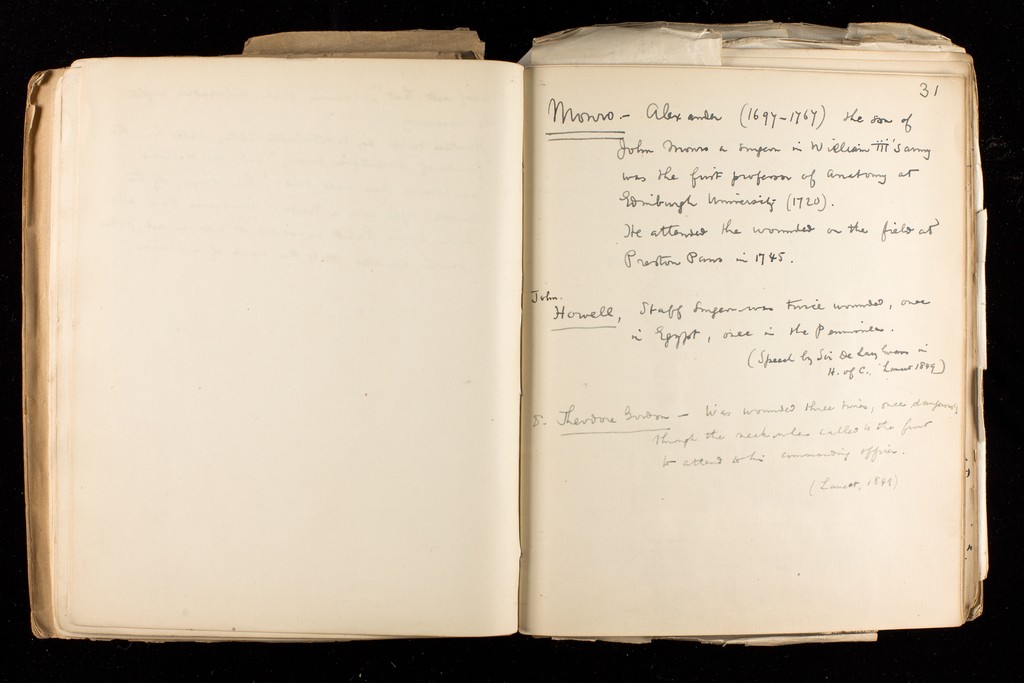 31
Monro.- Alexander (1697-1767) the son of
John Monro a surgeon in William III's army
was the first professor of anatomy at
Edinburgh University (1720).
He attended the wounded on the field at
Preston Pans in 1745.
John.
Howell, Staff Surgeon was twice wounded, once
in Egypt, once in the Peninsula.
(Speech by Sir De Lacy Evans in
H. of C., Lancet 1849)
Theodore Gordon - Was wounded three times, once dangerously
through the neck when called to the front
to attend to his commanding officer.
(Lancet, 1849)